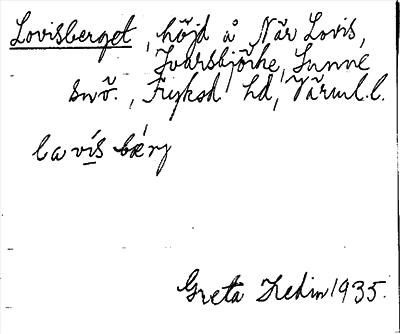 Lovisberget, höjd å När Lovis,
Ivarsbjörke, Sunne
snö., Fryksd hd, Värml.l.
lavís bærj
Greta Hedin 1935.